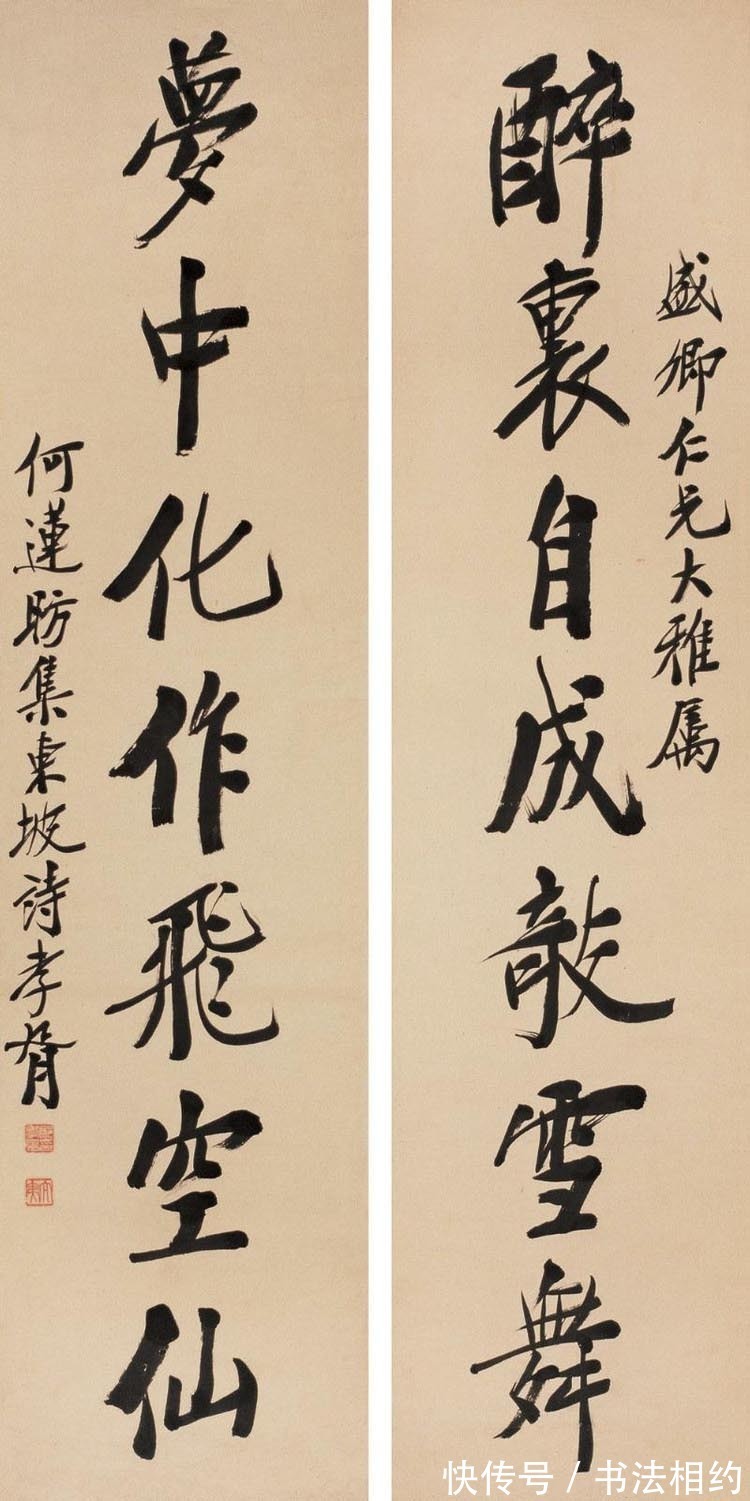 盛卿仁兄大雅属
醉裏自成敲雪舞
夢中化作飛空仙
何蓮舫集東坡詩孝胥
快传号 / 书法相约